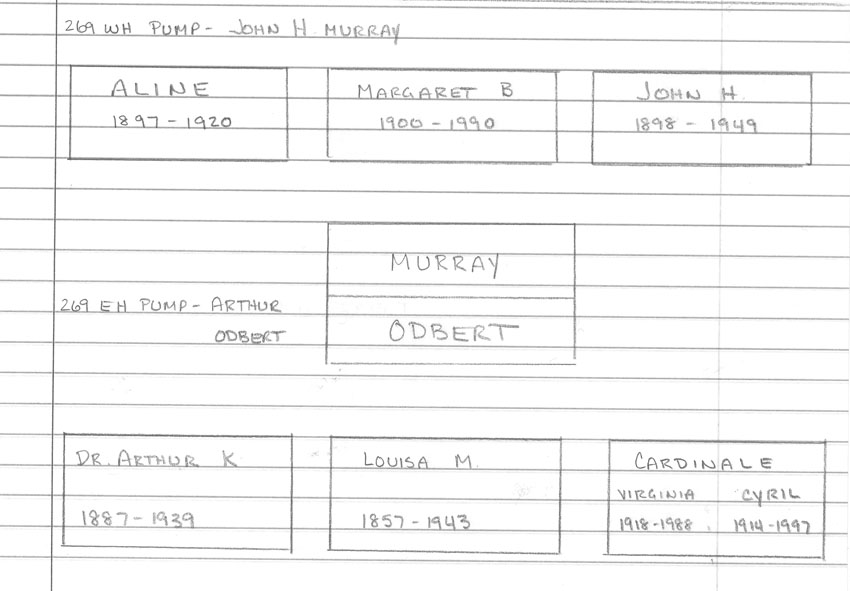 269 WH PUMP - JOHN H MURRAY
ALINE
1897 - 1920
MARGARET B
1900 - 1990
JOHN H.
1898 - 1949
MURRAY
269 EH PUMP - ARTHUR
ODBERT
ODBERT
DR. ARTHUR K
1887 - 1939
LOUISA M.
1857 - 1943
CARDINALE
VIRGINIA CYRIL
1918 - 1988 1914 - 1997